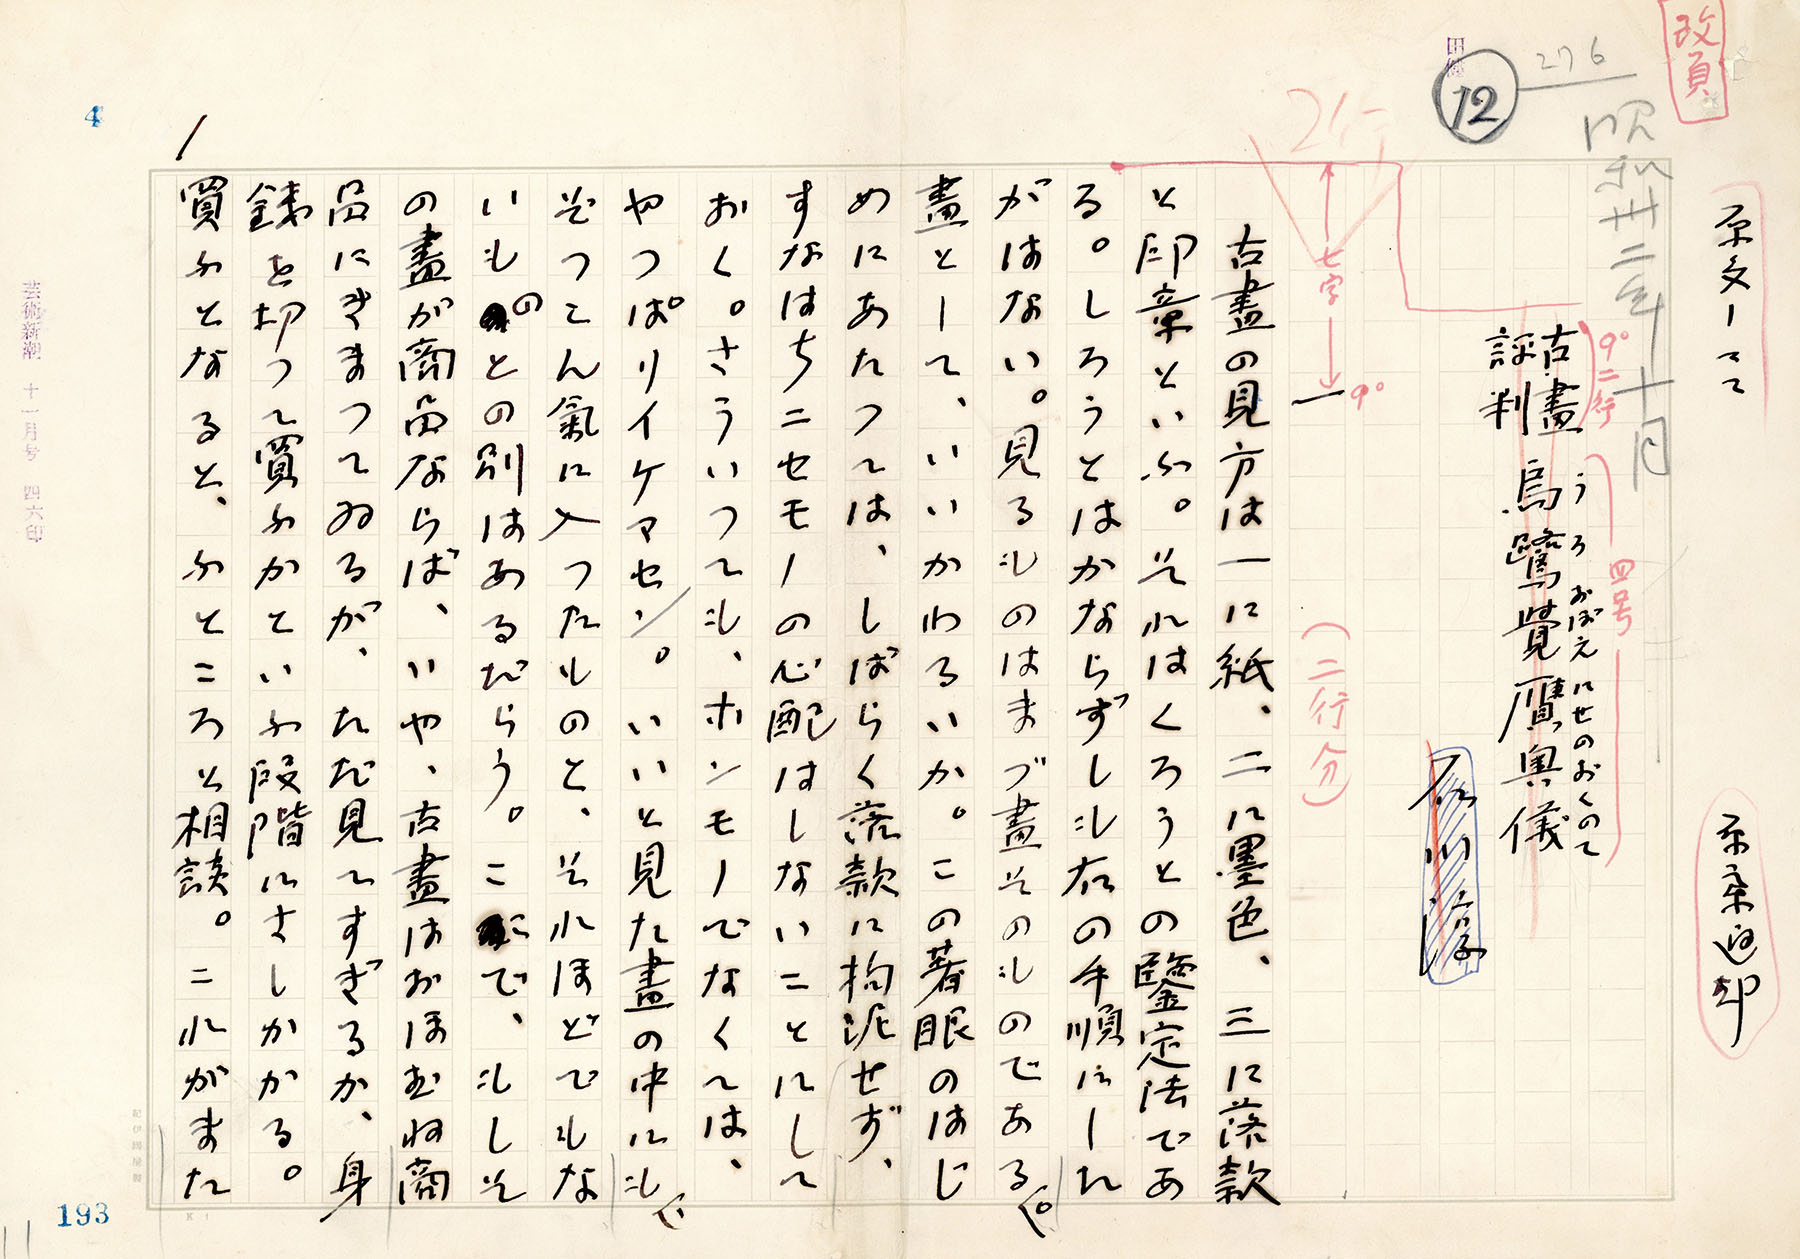 改頁
原文のまゝ
原稿返却
昭和卅二年十月
276
12
田儀
古畫
評判
9°二行
烏鷺覺贋奥儀
うろおぼえにせのおくのて
四号
石川淳
2行
七字
9°
(二行分)
古畫の見方は一に紙、二に墨色、三に落款
と印章といふ。それはくろうとの鑒定法であ
る。しろうとはかならずしも右の手順にした
がはない。見るものはまづ畫そのものである。
畫として、いいかわるいか。この著眼のはじ
めにあたつては、しばらく落款に拘泥せず、
すなはちニセモノの心配はしないことにして
おく。さういつても、ホンモノでなくては、
やつぱりイケマセン。いいと見た畫の中にも、
ぞつこん氣に入つたものと、それほどでもな
いものとの別はあるだらう。ここで、もしそ
の畫が商品ならば、いや、古畫はおほむね商
品にきまつてゐるが、ただ見てすぎるか、身
錢を切つて買ふかといふ段階にさしかかる。
買ふとなると、ふところと相談。これがまた
4
193
芸術新潮 十一月号 四六印
紀伊國屋製